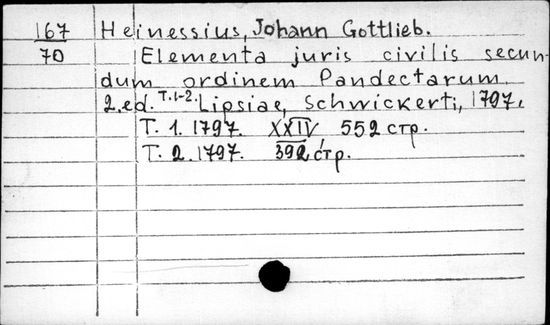 167 Heinessius, Johann Gottlieb.
70 Elementa juris civilis secun-
dum ordinem Pandectarum.
2.ed. T.1-2. Lipsiae, Schwickerti, 1797.
T. 1. 1797. XXIV 552 стр.
T. 2. 1797. 392 стр.